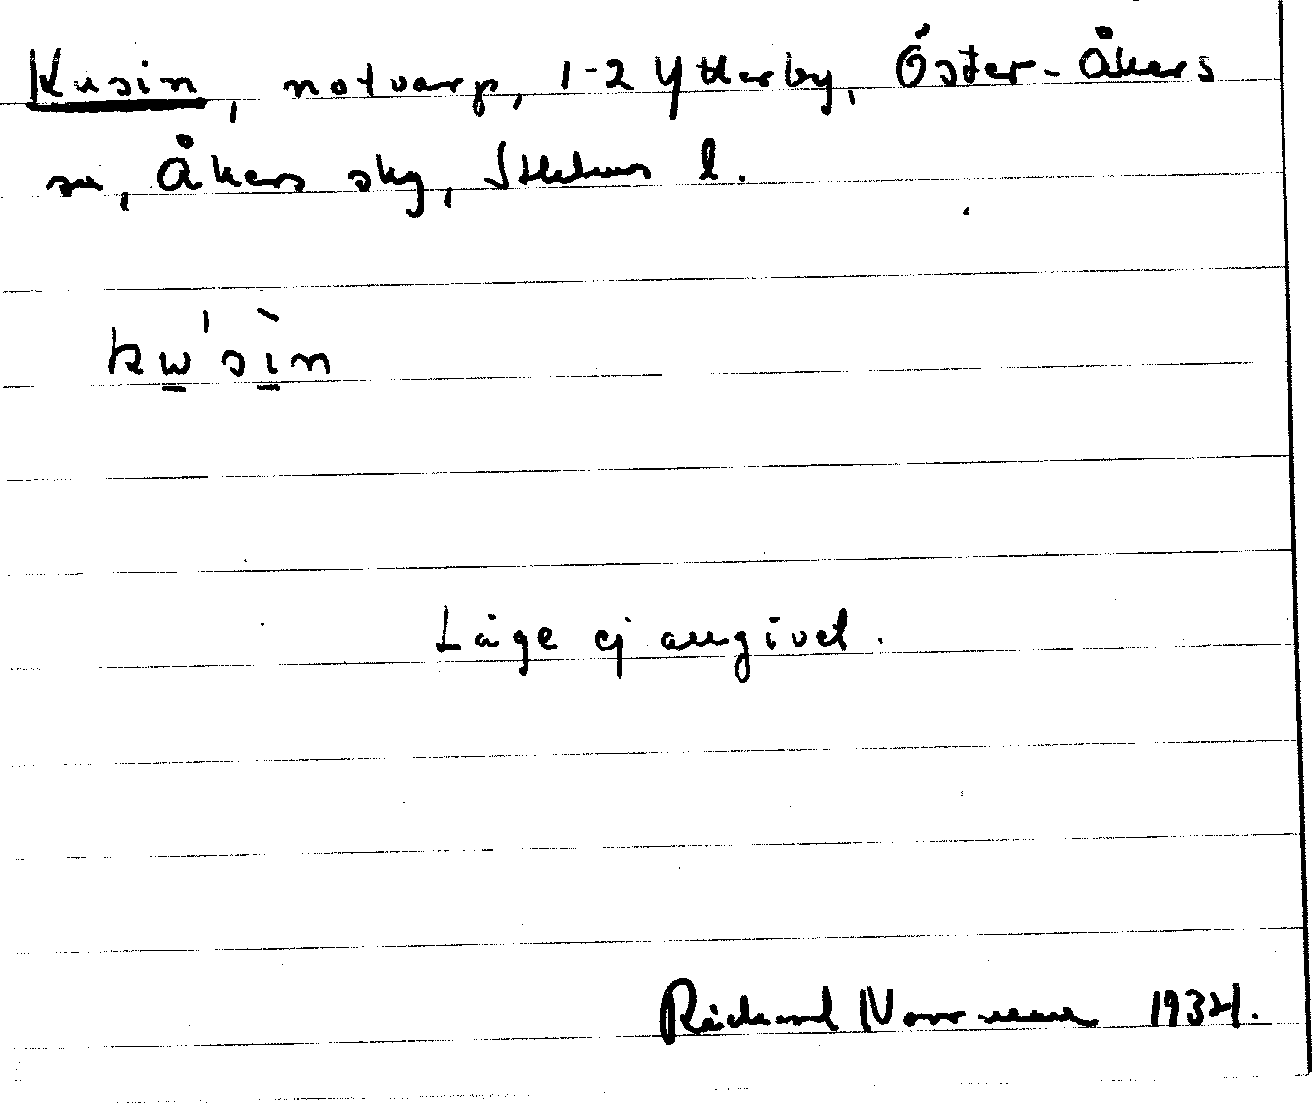 Kusin, notvarp, 1-2 Ytterby, Öster-Åkers
sn, Åkers skg, Sthlms l.
kɯ'sìn
Läge ej angivet.
Rickard Norrman 1934.